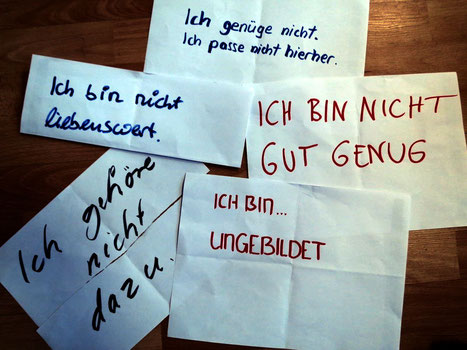 Ich genüge nicht.
Ich passe nicht hierher.
Ich bin nicht
liebenswert.
ICH BIN NICHT
GUT GENUG
Ich gehöre
nicht
dazu.
ICH BIN...
UNGEBILDET